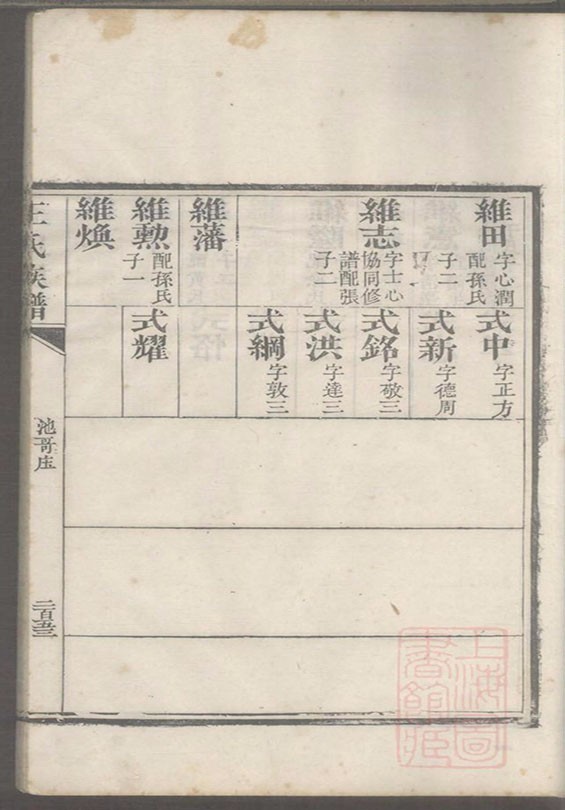 維田
字心潤
配孫氏
子二
維志
字士心
協同修
譜配張
子二
維藩
維勲
配孫氏
子一
維煥
式中
字正方
式新
字德周
式銘
字敬三
式洪
字達三
式綱
字敦三
式耀
王氏族譜
池哥庄
二百五三
上海圖
書館藏